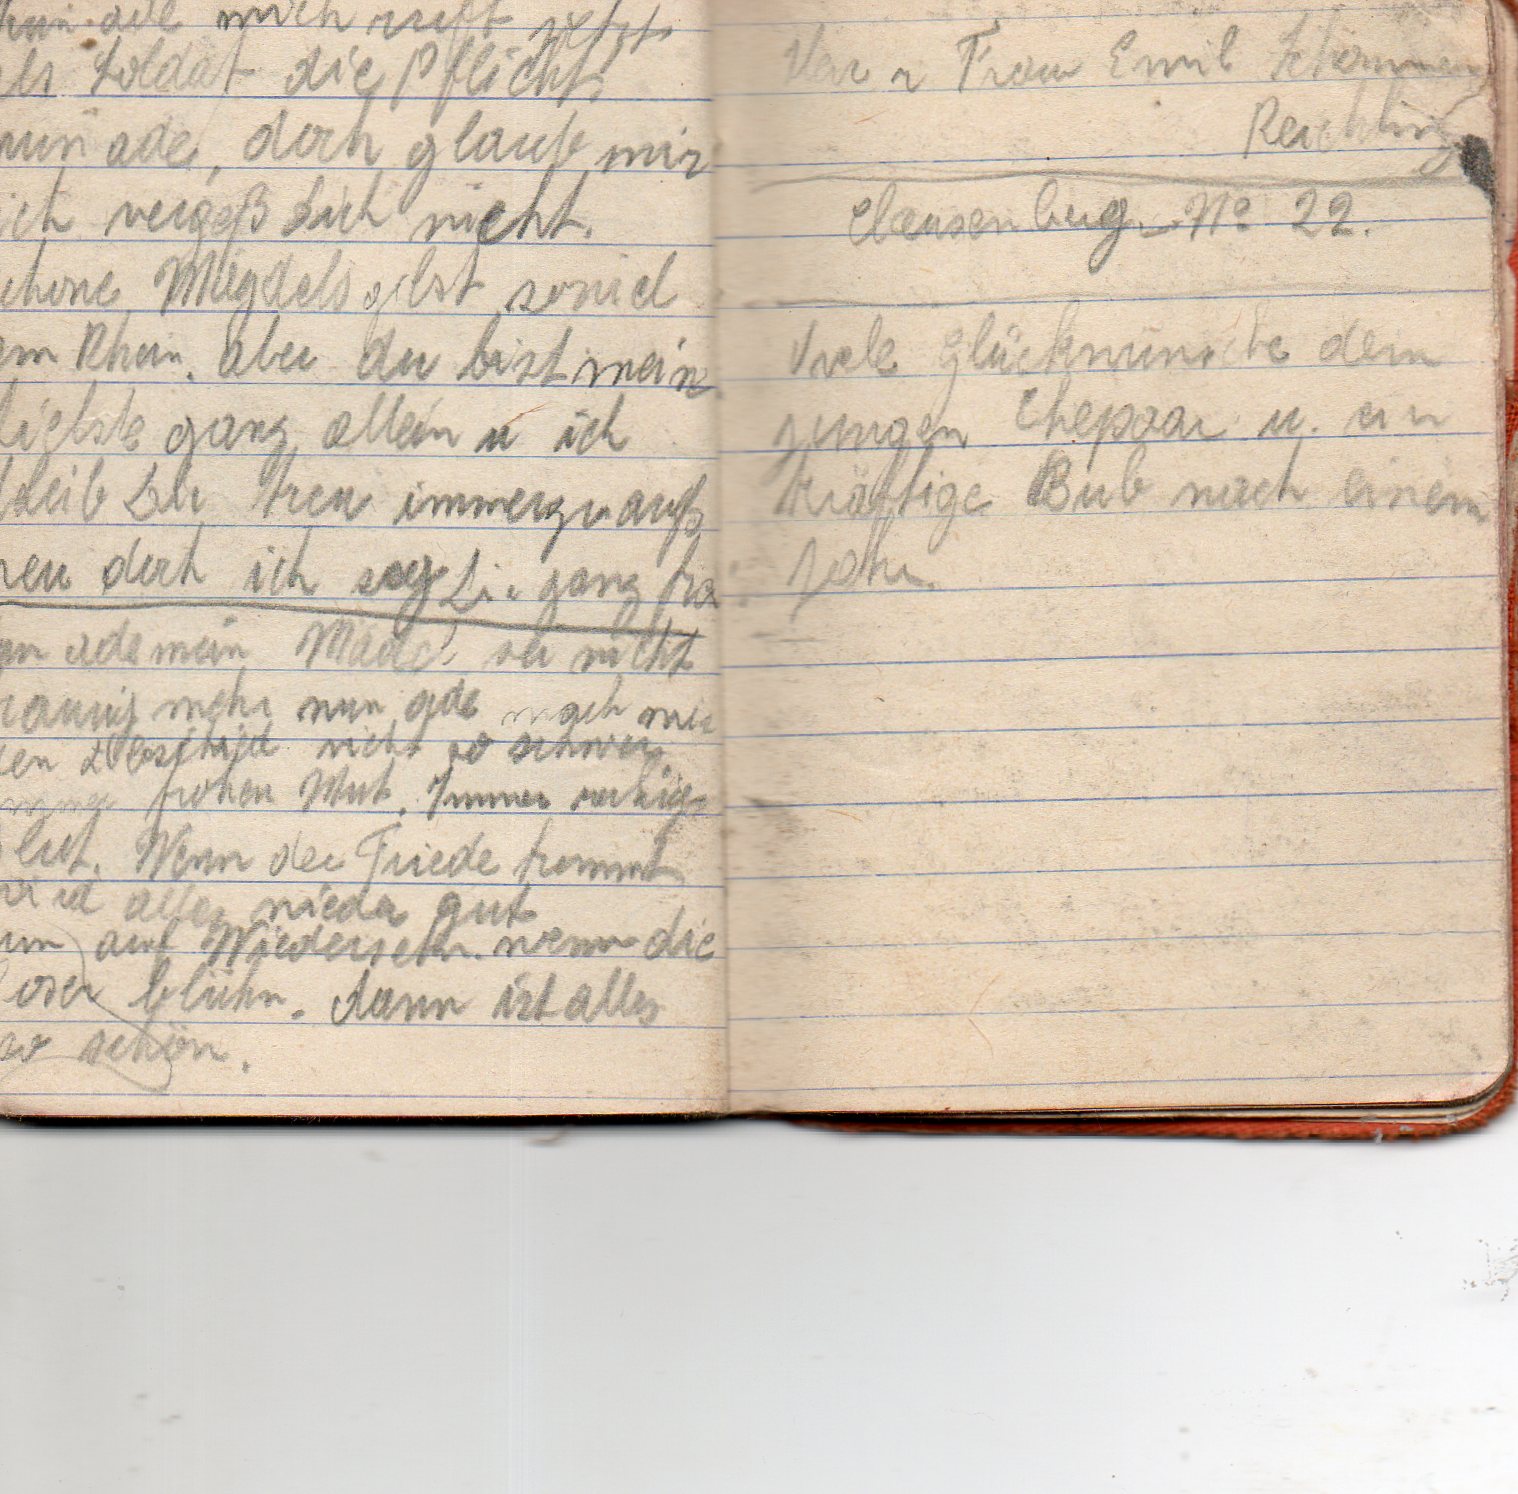 Nun ade mich ruft jetzt
als Soldat die Pflicht.
nun ade, doch glaub mir
ich vergeß Dich nicht.
chöne Mägdels gibst soviel
am Rhein. aber du bist mein
liebste ganz allein u ich
bleib Dir treu immerzu
reu doch ich sag Dir ganz
un ade mein Mädel sei nicht
traurig mehr nun ade mach mir
en Abschied nicht so schwer
frohen Mut. Immer ruhig
lut. Wenn der Friede kommt
wird alles wieder gut
un auf Wiedersehn. wenn die
osen blühn. dann ist alles
so schön.
Frau Emil
Reichling
No 22.
Viele Glückwünsche dem
jungen Ehepaar u. ein
kräftige Bub nach einem
Jahr.